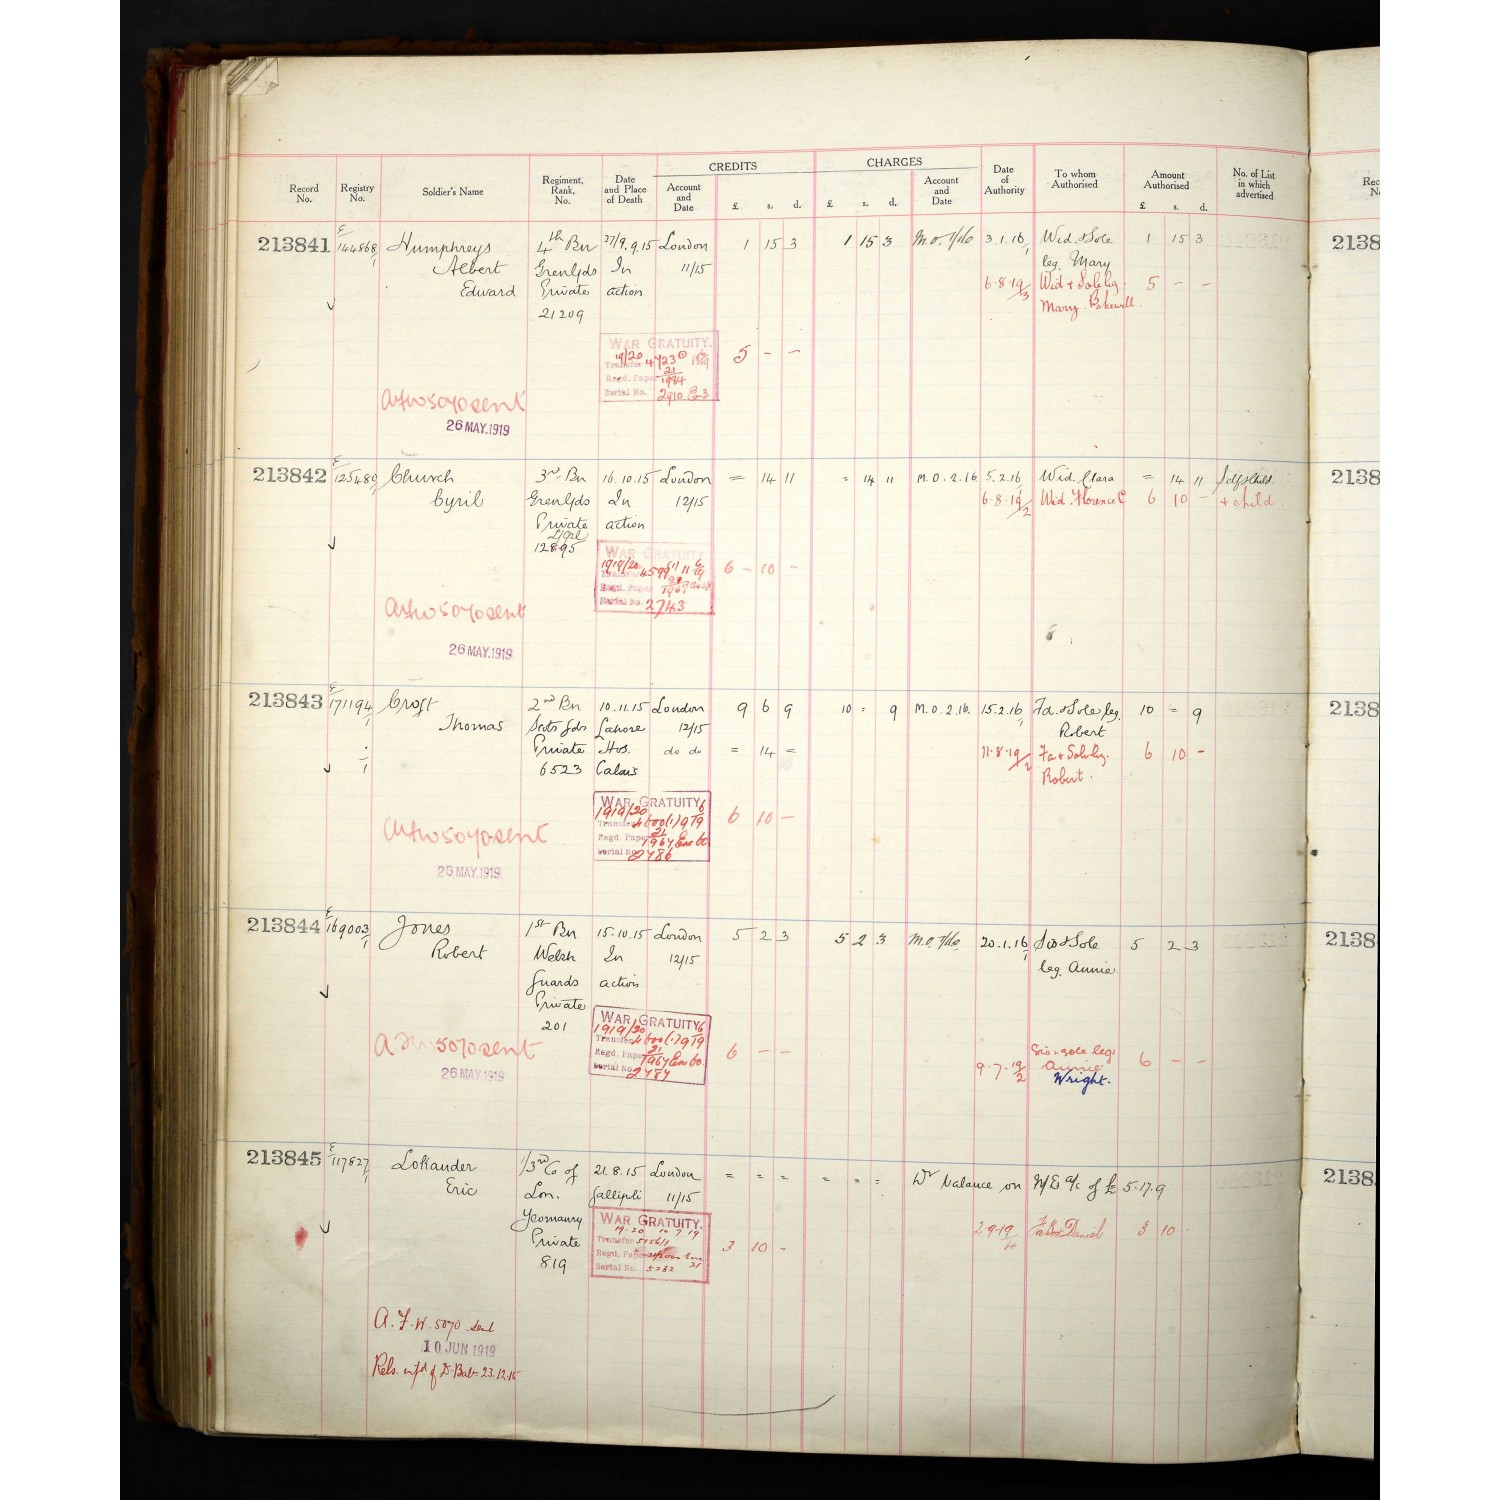 CREDITS CHARGES
Record No. Registry No. Soldier's Name Regiment, Rank, No. Date and Place of Death Account and Date £ s. d. £ s. d. Account and Date Date of Authority To whom Authorised Amount Authorised £ s. d. No. of List in which advertised
Rec
213841 E 144868/1 Humphreys 4th Bn 27/9.9.15 London 1 15 3 1 15 3 M.O. 1/16 3.1.16 Wid. & Sole 1 15 3 2138
Albert Gren Gds In 11/15 leg. Mary
Edward Private action 6.8.19/3 Wid & Sole leg. 5 - -
21209 Mary Bakewell
WAR GRATUITY. 5 - -
19/20
Transfer
Regd. Paper 21/1984
Serial No. 2910
AFW 5070 sent
26 MAY.1919
213842 E 125480/1 Church 3rd Bn 16.10.15 London = 14 11 = 14 11 M.O. 2.16 5.2.16 Wid. Clara = 14 11 Self & Child 2138
Cyril Gren Gds In 12/15 6.8.19/2 Wid. Florence C 6 10 - + child
Private action
L/Cpl
12895
WAR GRATUITY 6 - 10 -
1919/20
Transfer
Regd. Paper
Serial No. 2743
AFW 5070 sent
26 MAY.1919
213843 E 171194/1 Croft 2nd Bn 10.11.15 London 9 6 9 10 = 9 M.O. 2.16. 15.2.16 Fa. & Sole leg. 10 = 9 2138
Thomas Scots Gds Lahore 12/15 Robert
Private Hos. do do = 14 = 11.8.19/2 Fa & Sole leg. 6 10 -
6523 Calais Robert.
WAR GRATUITY 6 10 -
1919/20
Transfer
Regd. Paper
Serial No. 2786
AFW 5070 sent
26 MAY.1919
213844 E 169003/1 Jones 1st Bn 15.10.15 London 5 2 3 5 2 3 M.O. 1/16 20.1.16 Sis & Sole 5 2 3 2138
Robert Welsh In 12/15 leg. Annie
Guards action
Private
201
WAR GRATUITY 6 - -
1919/20
Transfer
Regd. Paper
Serial No. 2787
9.7.19/2 Sis & sole leg. 6 - -
Annie
Wright.
AFW 5070 sent
26 MAY.1919
213845 E 117827/1 Lokander 1/3rd Co of 21.8.15 London = = = = = = Dr balance on N/E a/c of £ 5.17.9 2138
Eric Lon. Gallipoli 11/15
Yeomanry
Private
819
WAR GRATUITY. 3 10 - 2.9.19/4 Daniel 3 10 -
19-20
Transfer
Regd. Paper
Serial No. 5232
A.F.W. 5070 sent
10 JUN 1919
23.12.15